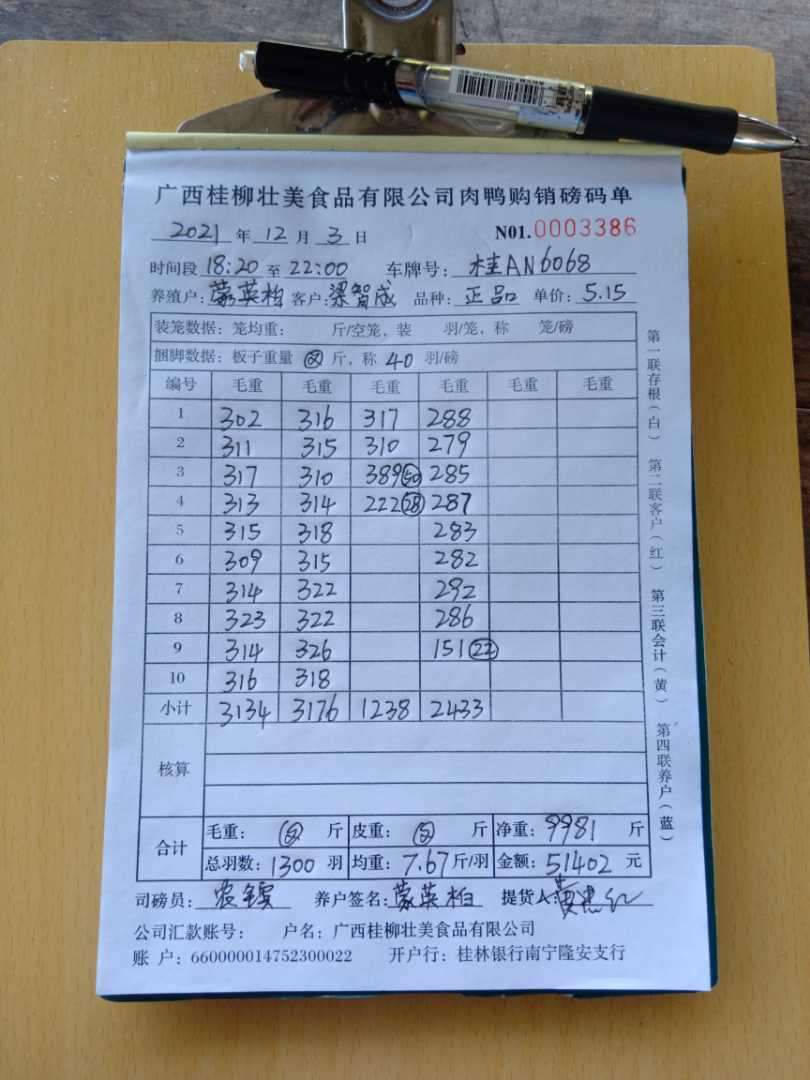 广西桂柳壮美食品有限公司肉鸭购销磅码单
2021 年 12 月 3 日 N01.0003386
时间段 18:20 至 22:00 车牌号: 桂AN6068
养殖户: 蒙英柏 客户: 梁智成 品种: 正品 单价: 5.15
装笼数据: 笼均重: 斤/空笼, 装 羽/笼, 称 笼/磅
捆脚数据: 板子重量 斤, 称 40 羽/磅
编号 毛重 毛重 毛重 毛重 毛重 毛重
1 302 316 317 288
2 311 315 310 279
3 317 310 389 50 285
4 313 314 222 28 287
5 315 318 283
6 309 315 282
7 314 322 292
8 323 322 286
9 314 326 151 22
10 316 318
小计 3134 3176 1238 2433
核算
合计 毛重: 斤 皮重: 斤 净重: 9981 斤
总羽数: 1300 羽 均重: 7.67 斤/羽 金额: 51402 元
司磅员: 养户签名: 蒙英柏 提货人:
公司汇款账号: 户名: 广西桂柳壮美食品有限公司
账 户: 660000014752300022 开户行: 桂林银行南宁隆安支行
第一联存根(白) 第二联客户(红) 第三联会计(黄) 第四联养户(蓝)